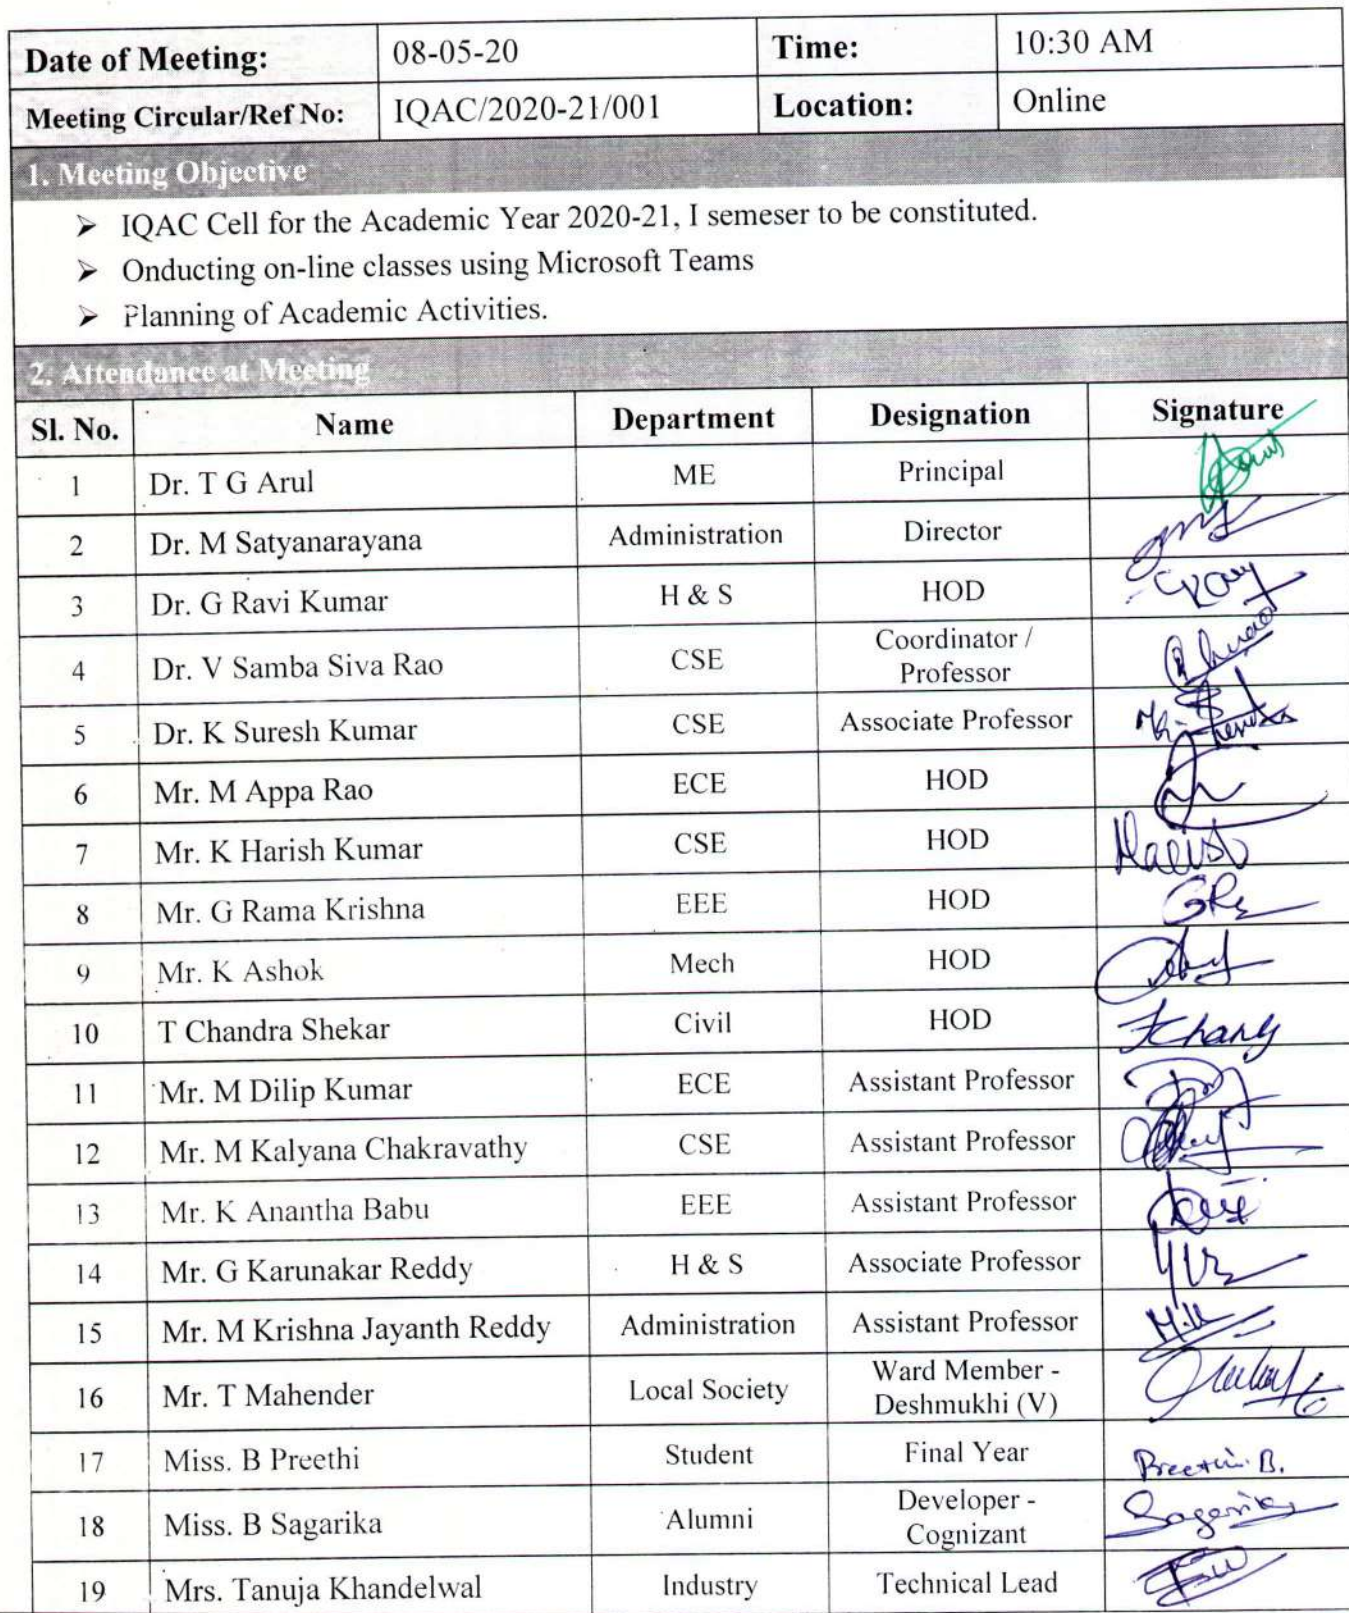 Date of Meeting: 08-05-20 Time: 10:30 AM
Meeting Circular/Ref No: IQAC/2020-21/001 Location: Online
1. Meeting Objective
➢ IQAC Cell for the Academic Year 2020-21, I semeser to be constituted.
➢ Onducting on-line classes using Microsoft Teams
➢ Planning of Academic Activities.
2. Attendance at Meeting
Sl. No. Name Department Designation Signature
1 Dr. T G Arul ME Principal
2 Dr. M Satyanarayana Administration Director
3 Dr. G Ravi Kumar H & S HOD
4 Dr. V Samba Siva Rao CSE Coordinator /
Professor
5 Dr. K Suresh Kumar CSE Associate Professor
6 Mr. M Appa Rao ECE HOD
7 Mr. K Harish Kumar CSE HOD Harish
8 Mr. G Rama Krishna EEE HOD
9 Mr. K Ashok Mech HOD
10 T Chandra Shekar Civil HOD
11 Mr. M Dilip Kumar ECE Assistant Professor
12 Mr. M Kalyana Chakravathy CSE Assistant Professor
13 Mr. K Anantha Babu EEE Assistant Professor
14 Mr. G Karunakar Reddy H & S Associate Professor
15 Mr. M Krishna Jayanth Reddy Administration Assistant Professor
16 Mr. T Mahender Local Society Ward Member -
Deshmukhi (V)
17 Miss. B Preethi Student Final Year Preethi. B.
18 Miss. B Sagarika Alumni Developer - Sagarika
Cognizant
19 Mrs. Tanuja Khandelwal Industry Technical Lead